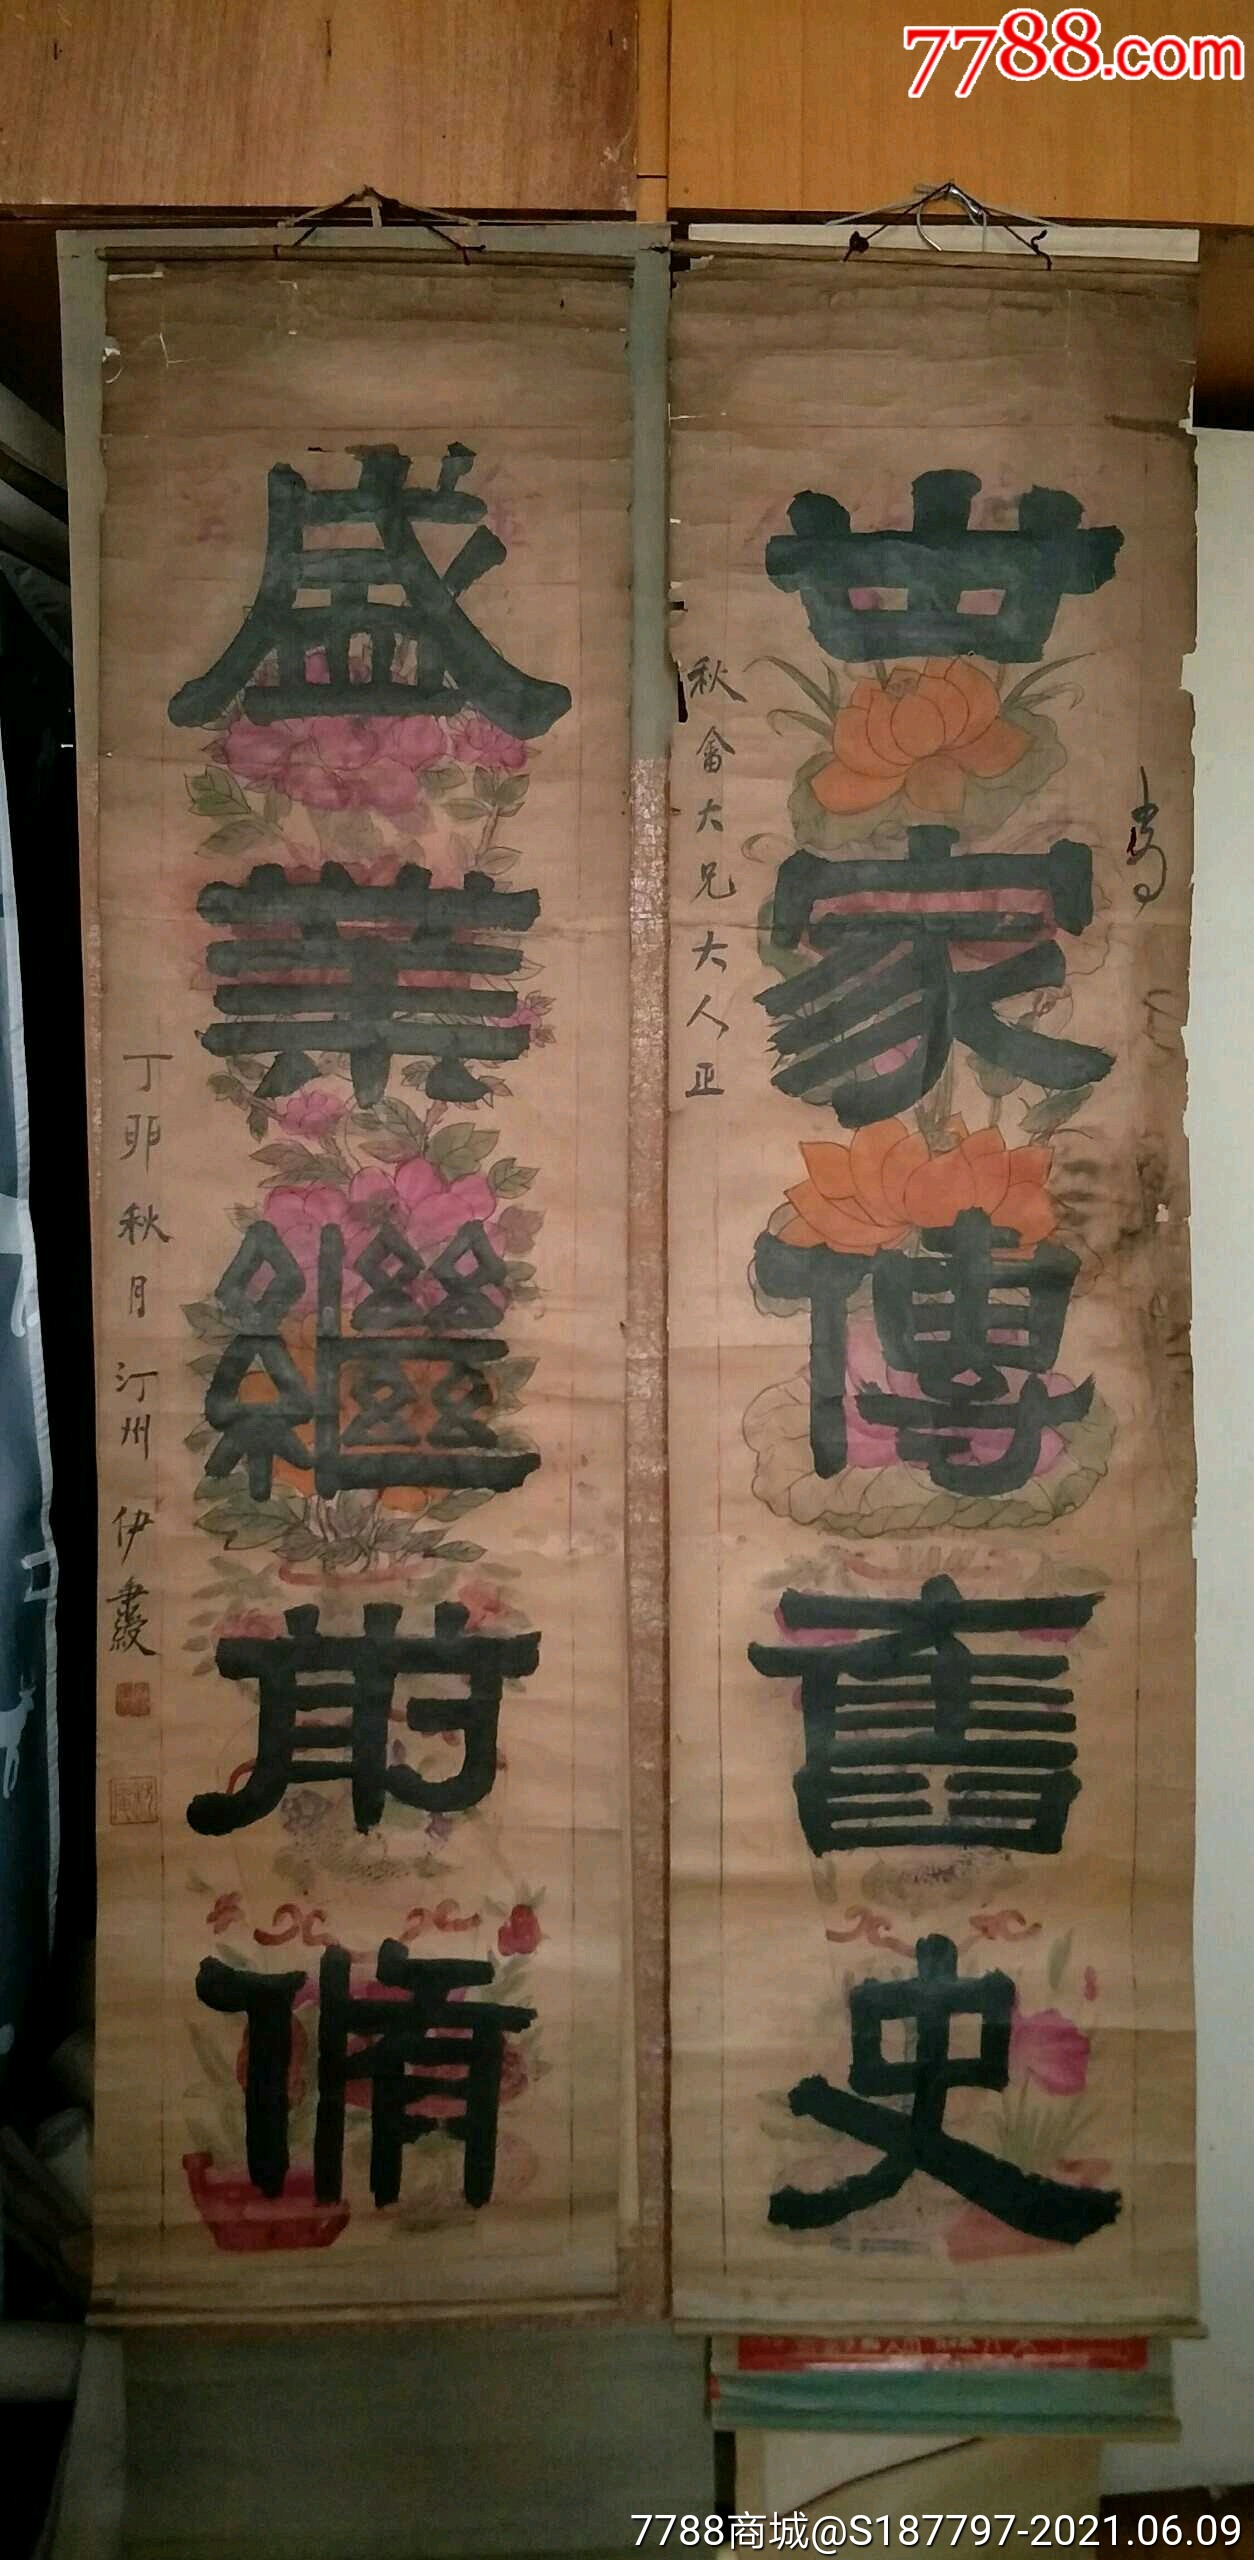 7788.com
世家傳舊史
秋畬大兄大人正
盛業繼前脩
丁卯秋月汀州伊秉綬
7788商城@S187797-2021.06.09